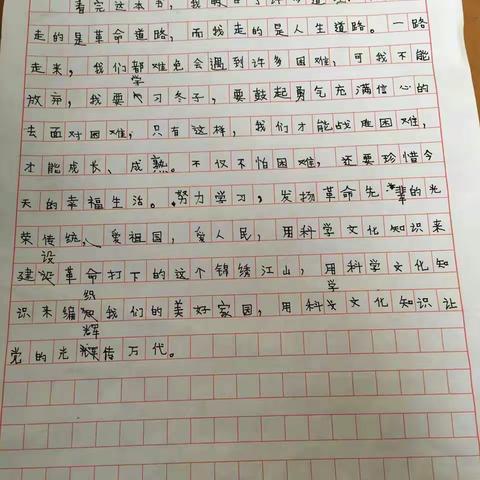 看完这本书，我
走的是革命道路，而我走的是人生道路。一路
走来，我们都难免会遇到许多困难，可我不能
放弃，我要学习冬子，要鼓起勇气充满信心的
去面对困难，只有这样，我们才能战胜困难，
才能成长、成熟。不仅不怕困难，还要珍惜今
天的幸福生活。努力学习，发扬革命先辈的光
荣传统、爱祖国，爱人民，用科学文化知识来
建设革命打下的这个锦绣江山，用科学文化知
识来编织我们的美好家园，用科学文化知识让
党的光辉传万代。